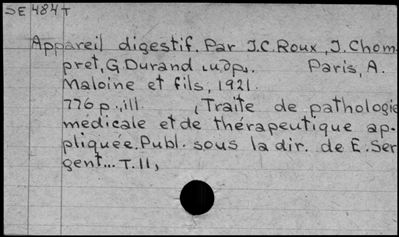 SE484T
Appareil digestif. Par J.C. Roux, J. Chom-
pret, G Durand и др. Paris, A.
Maloine et fils, 1921.
776 p., ill. (Traite de pathologie
médicale et de thérapeutique ap-
pliquée. Publ. sous la dir. de E. Ser
gent... T. 11,